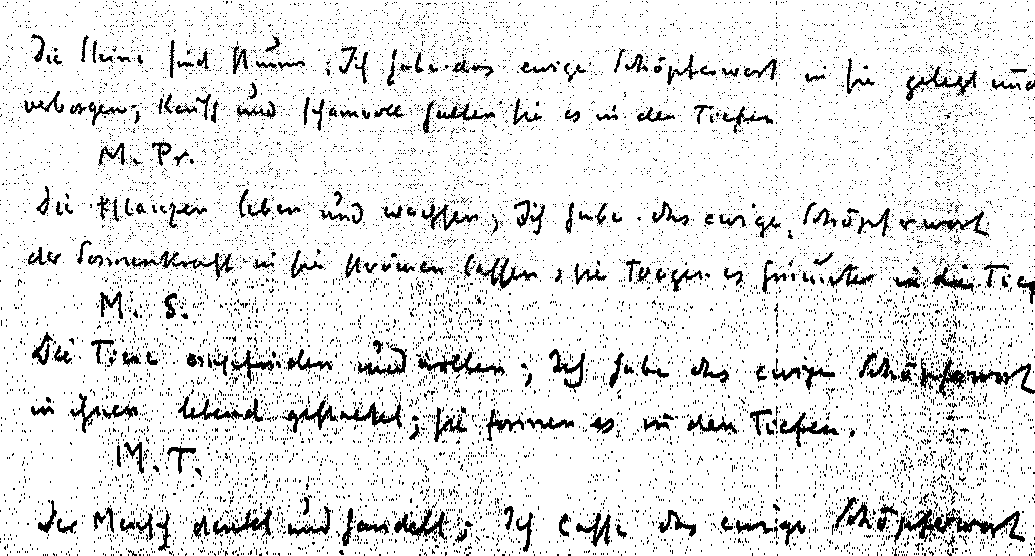 Die Steine sind stumm; Ich habe das ewige Schöpferwort in sie gelegt und
verborgen; keusch und schamvoll halten sie es in den Tiefen
M. Pr.
Die Pflanzen leben und wachsen; Ich habe das ewige Schöpferwort
der Sonnenkraft in sie strömen lassen; sie tragen es hinunter in die Tief
M. S.
Die Tiere empfinden und wollen; Ich habe das ewige Schöpferwort
in ihnen lebend gestaltet; sie formen es in den Tiefen.
M. T.
Der Mensch denkt und handelt; Ich lasse das ewige Schöpferwort